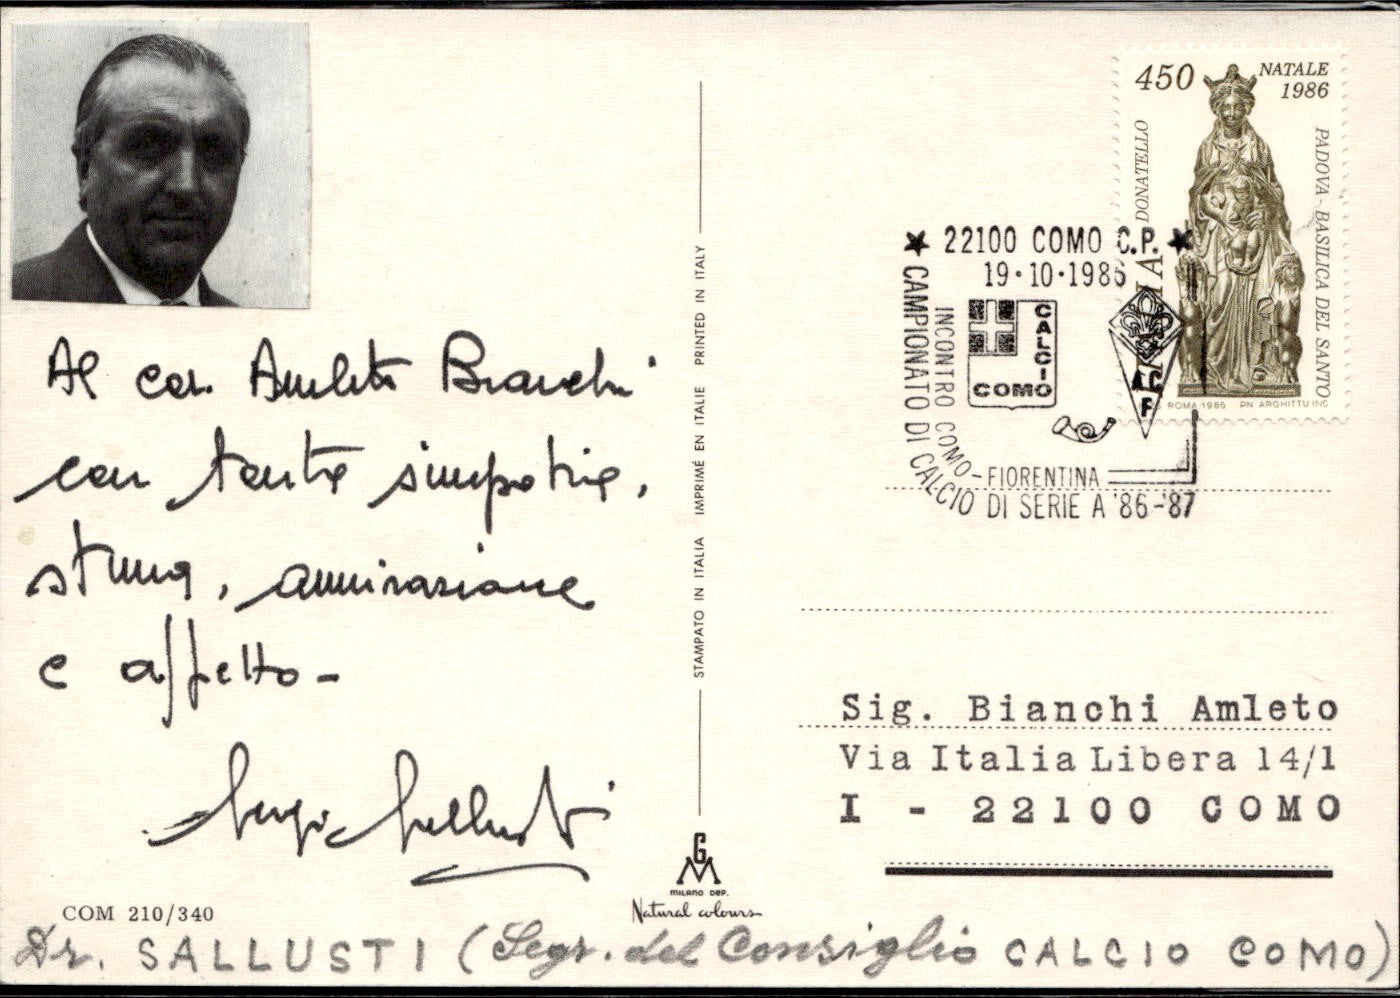 Al car. Amleto Bianchi
con tanta simpatia,
stima, ammirazione
e affetto -
Sergio Sallusti
COM 210/340
Dr. SALLUSTI (Segr. del Consiglio CALCIO COMO)
STAMPATO IN ITALIA IMPRIMÉ EN ITALIE PRINTED IN ITALY
GM
MILANO DEP.
Natural colours
450 NATALE
1986
DONATELLO
PADOVA - BASILICA DEL SANTO
ITALIA
ROMA 1986 PN. ARGHITTU INC.
★ 22100 COMO C.P. ★
19·10·1986
CALCIO
COMO
ACF
INCONTRO COMO - FIORENTINA
CAMPIONATO DI CALCIO DI SERIE A '86-'87
Sig. Bianchi Amleto
Via Italia Libera 14/1
I - 22100 COMO